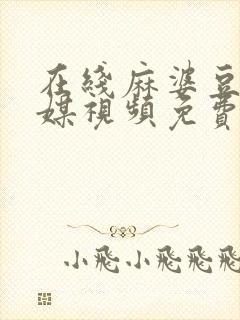 在綫麻婆豆
媒視頻免費
小飛小飛飛飛